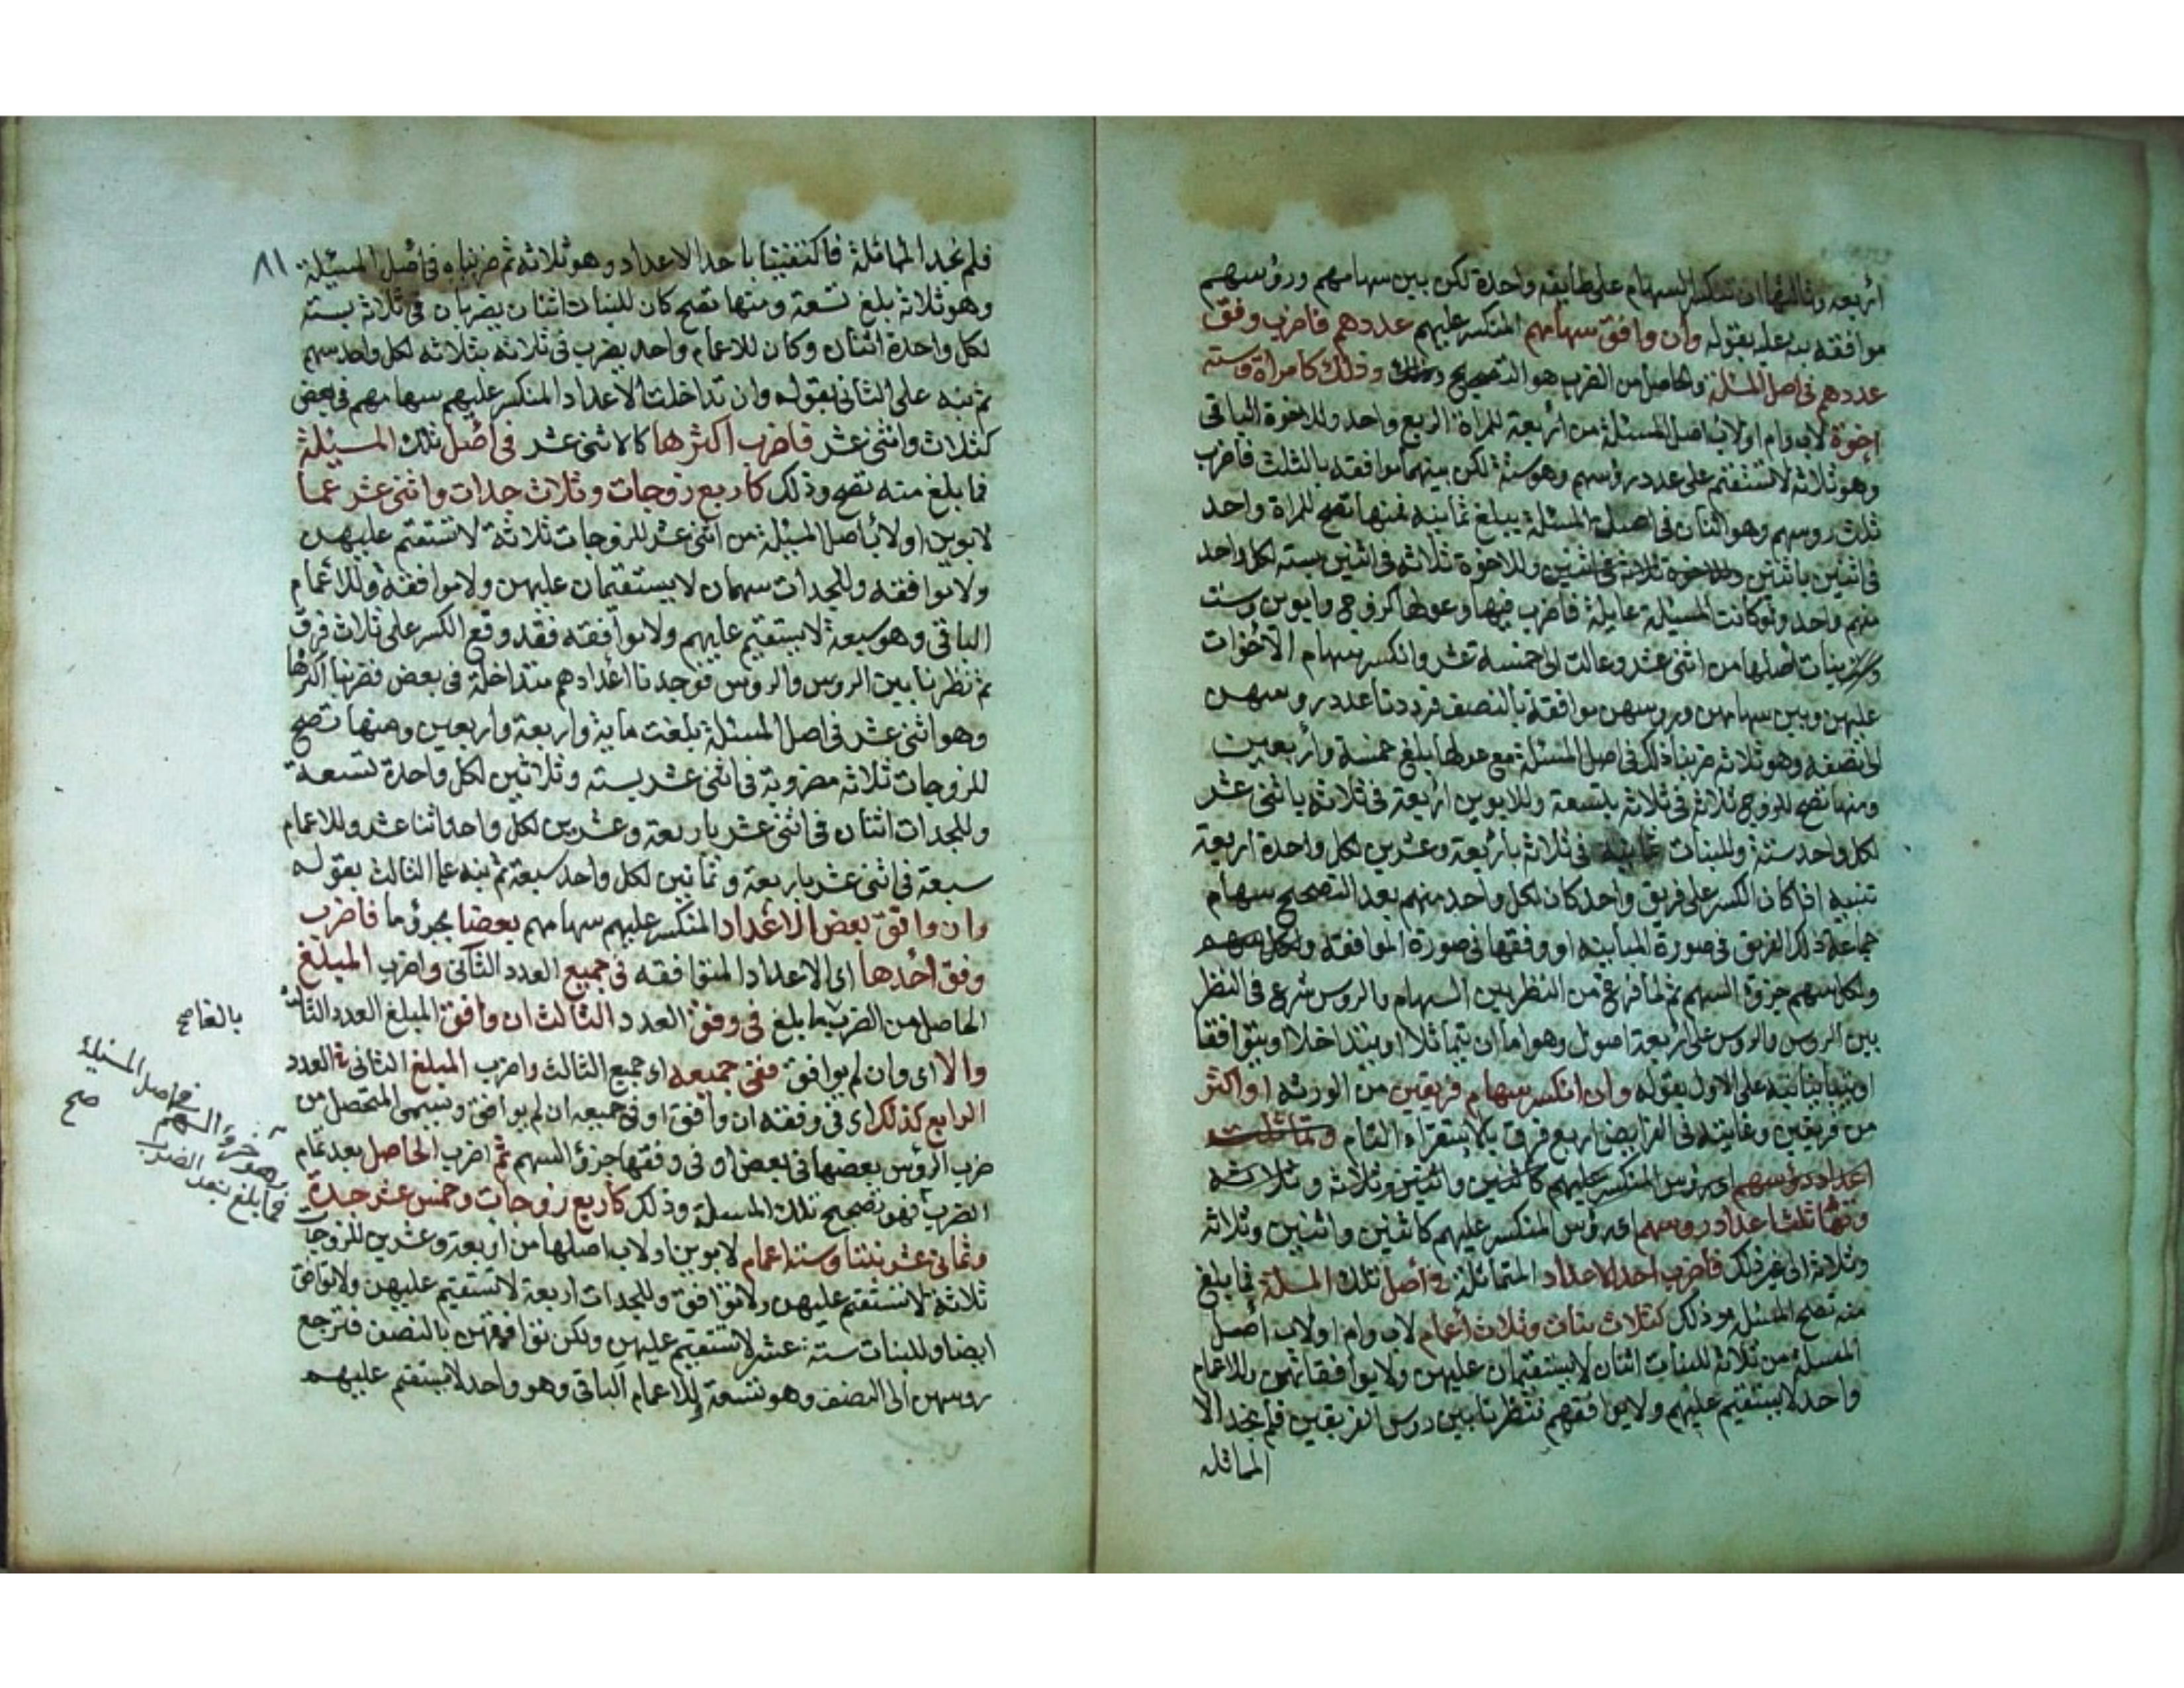 أربعة وثالثها ان تنكسر السهام على طائفة واحدة لكن بين سهامهم ورؤسهم
موافقة نبه عليه بقوله وان وافق سهامهم المنكسر عليهم عددهم فاضرب وفق
عددهم في اصل المسئلة والحاصل من الضرب هو التصحيح وذلك كامراة وستة
اخوة لاب وام او لاب اصل المسئلة من أربعة للمراة الربع واحد وللاخوة الباقي
وهو ثلاثة لا تستقيم على عدد رؤسهم وهو ستة لكن بينهما موافقة بالثلث فاضرب
ثلث روسهم وهو اثنان في اصل المسئلة يبلغ ثمانية فمنها تصح للمراة واحد
في اثنين باثنين وللاخوة ثلاثة في اثنين بستة لكل واحد
منهم واحد ولو كانت المسئلة عايلة فاضرب فيها وعولها كزوج وابوين وست
بنات اصلها من اثني عشر وعالت الى خمسة عشر وانكسر سهام الاخوات
عليهن وبين سهامهن وروسهن موافقة بالنصف فرددنا عدد روسهن
الى نصفه وهو ثلاثة ضربنا ذلك في اصل المسئلة مع عولها بلغ خمسة وأربعين
ومنها تصح للزوج ثلاثة في ثلاثة بتسعة وللابوين اربعة في ثلاثة باثني عشر
لكل واحد ستة وللبنات ثمانية في ثلاثة بأربعة وعشرين لكل واحدة اربعة
تنبيه اذا كان الكسر على فريق واحد كان لكل واحد منهم بعد التصحيح سهام
جماعة ذلك الفريق في صورة المباينة او وفقها في صورة الموافقة
ولكل سهم جزؤ السهم ثم لما فرغ من النظر بين السهام والروس شرع في النظر
بين الروس والروس على أربعة اصول وهو اما ان يتماثلا او يتداخلا او يتوافقا
او يتباينا نبه على الاول بقوله وان انكسر سهام فريقين من الورثة او اكثر
من فريقين وغايته في الفرايض اربع فرق بالاستقراء التام وتماثلت
اعداد رؤسهم اي رؤس المنكسر عليهم كاثنين واثنين وثلاثة وثلاثة
وتماثلت اعداد روسهم اي رؤس المنكسر عليهم كاثنين واثنين وثلاثة
وثلاثة الى غير ذلك فاضرب احد الاعداد المتماثلة في أصل تلك المسلة فما بلغ
منه تصح المسئلة وذلك كثلاث بنات وثلاث أعمام لاب وام او لاب أصل
المسئلة من ثلاثة للبنات اثنان لا يستقيمان عليهن ولا يوافقانهن وللاعمام
واحد لا يستقيم عليهم ولا يوافقهم فنظرنا بين روس الفريقين فلم نجد الا
المماثلة
٨١
فلم نجد المماثلة فاكتفينا باحد الاعداد وهو ثلاثة ثم ضربناه في اصل المسئلة
وهو ثلاثة بلغ تسعة ومنها تصح كان للبنات اثنان يضربان في ثلاثة بستة
لكل واحدة اثنان وكان للاعمام واحد يضرب في ثلاثة بثلاثة لكل واحد سهم
ثم نبه على الثاني بقوله وان تداخلت الاعداد المنكسر عليهم سهامهم في بعض
كثلاث واثني عشر فاضرب اكثرها كالاثني عشر في أصل تلك المسئلة
فما بلغ منه تصح وذلك كأربع زوجات وثلاث جدات واثني عشر عما
لابوين او لأب اصل المسئلة من اثني عشر للزوجات ثلاثة لا تستقيم عليهن
ولا توافقه وللجدات سهمان لا يستقيمان عليهن ولا يوافقه وللاعمام
الباقي وهو سبعة لا يستقيم عليهم ولا يوافقه فقد وقع الكسر على ثلاث فرق
ثم نظرنا بين الروس والروس فوجدنا اعدادهم متداخلة في بعض فضربنا اكثرها
وهو اثني عشر في اصل المسئلة بلغت ماية واربعة واربعين ومنها تصح
للزوجات ثلاثة مضروبة في اثني عشر بستة وثلاثين لكل واحدة تسعة
وللجدات اثنان في اثني عشر باربعة وعشرين لكل واحد اثنا عشر وللاعمام
سبعة في اثني عشر باربعة وثمانين لكل واحد سبعة ثم نبه على الثالث بقوله
وان وافق بعض الاعداد المنكسر عليهم سهامهم بعضا بجزؤ ما فاضرب
وفق أحدها اي الاعداد المتوافقة في جميع العدد الثاني واضرب المبلغ
الحاصل من الضرب ما بلغ في وفق العدد الثالث ان وافق المبلغ العدد الثالث
والا اي وان لم يوافق ففي جميعه اي جميع الثالث واضرب المبلغ الثاني في العدد
الرابع كذلك اي في وفقه ان وافق او في جميعه ان لم يوافق ويسمى المتحصل من
ضرب الرؤس بعضها في بعض او في وفقها جزؤ السهم ثم اضرب الحاصل بعد تمام
الضرب فهو تصحيح تلك المسئلة وذلك كأربع زوجات وخمس عشر جدة
وثماني عشر بنتا وستة اعمام لابوين او لاب اصلها من أربعة وعشرين للزوجات
ثلاثة لا تستقيم عليهن ولا توافق وللجدات اربعة لا تستقيم عليهن ولا توافق
ايضا وللبنات ستة عشر لا تستقيم عليهن ولكن توافقهن بالنصف فترجع
روسهن الى النصف وهو تسعة وللاعمام الباقي وهو واحد لا يستقيم عليهم
بالغا صح
وهو جزؤ السهم في اصل المسئلة
فما بلغ بعد الضرب
صح